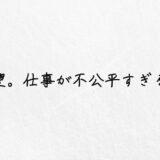 望。仕事が不公平すぎる